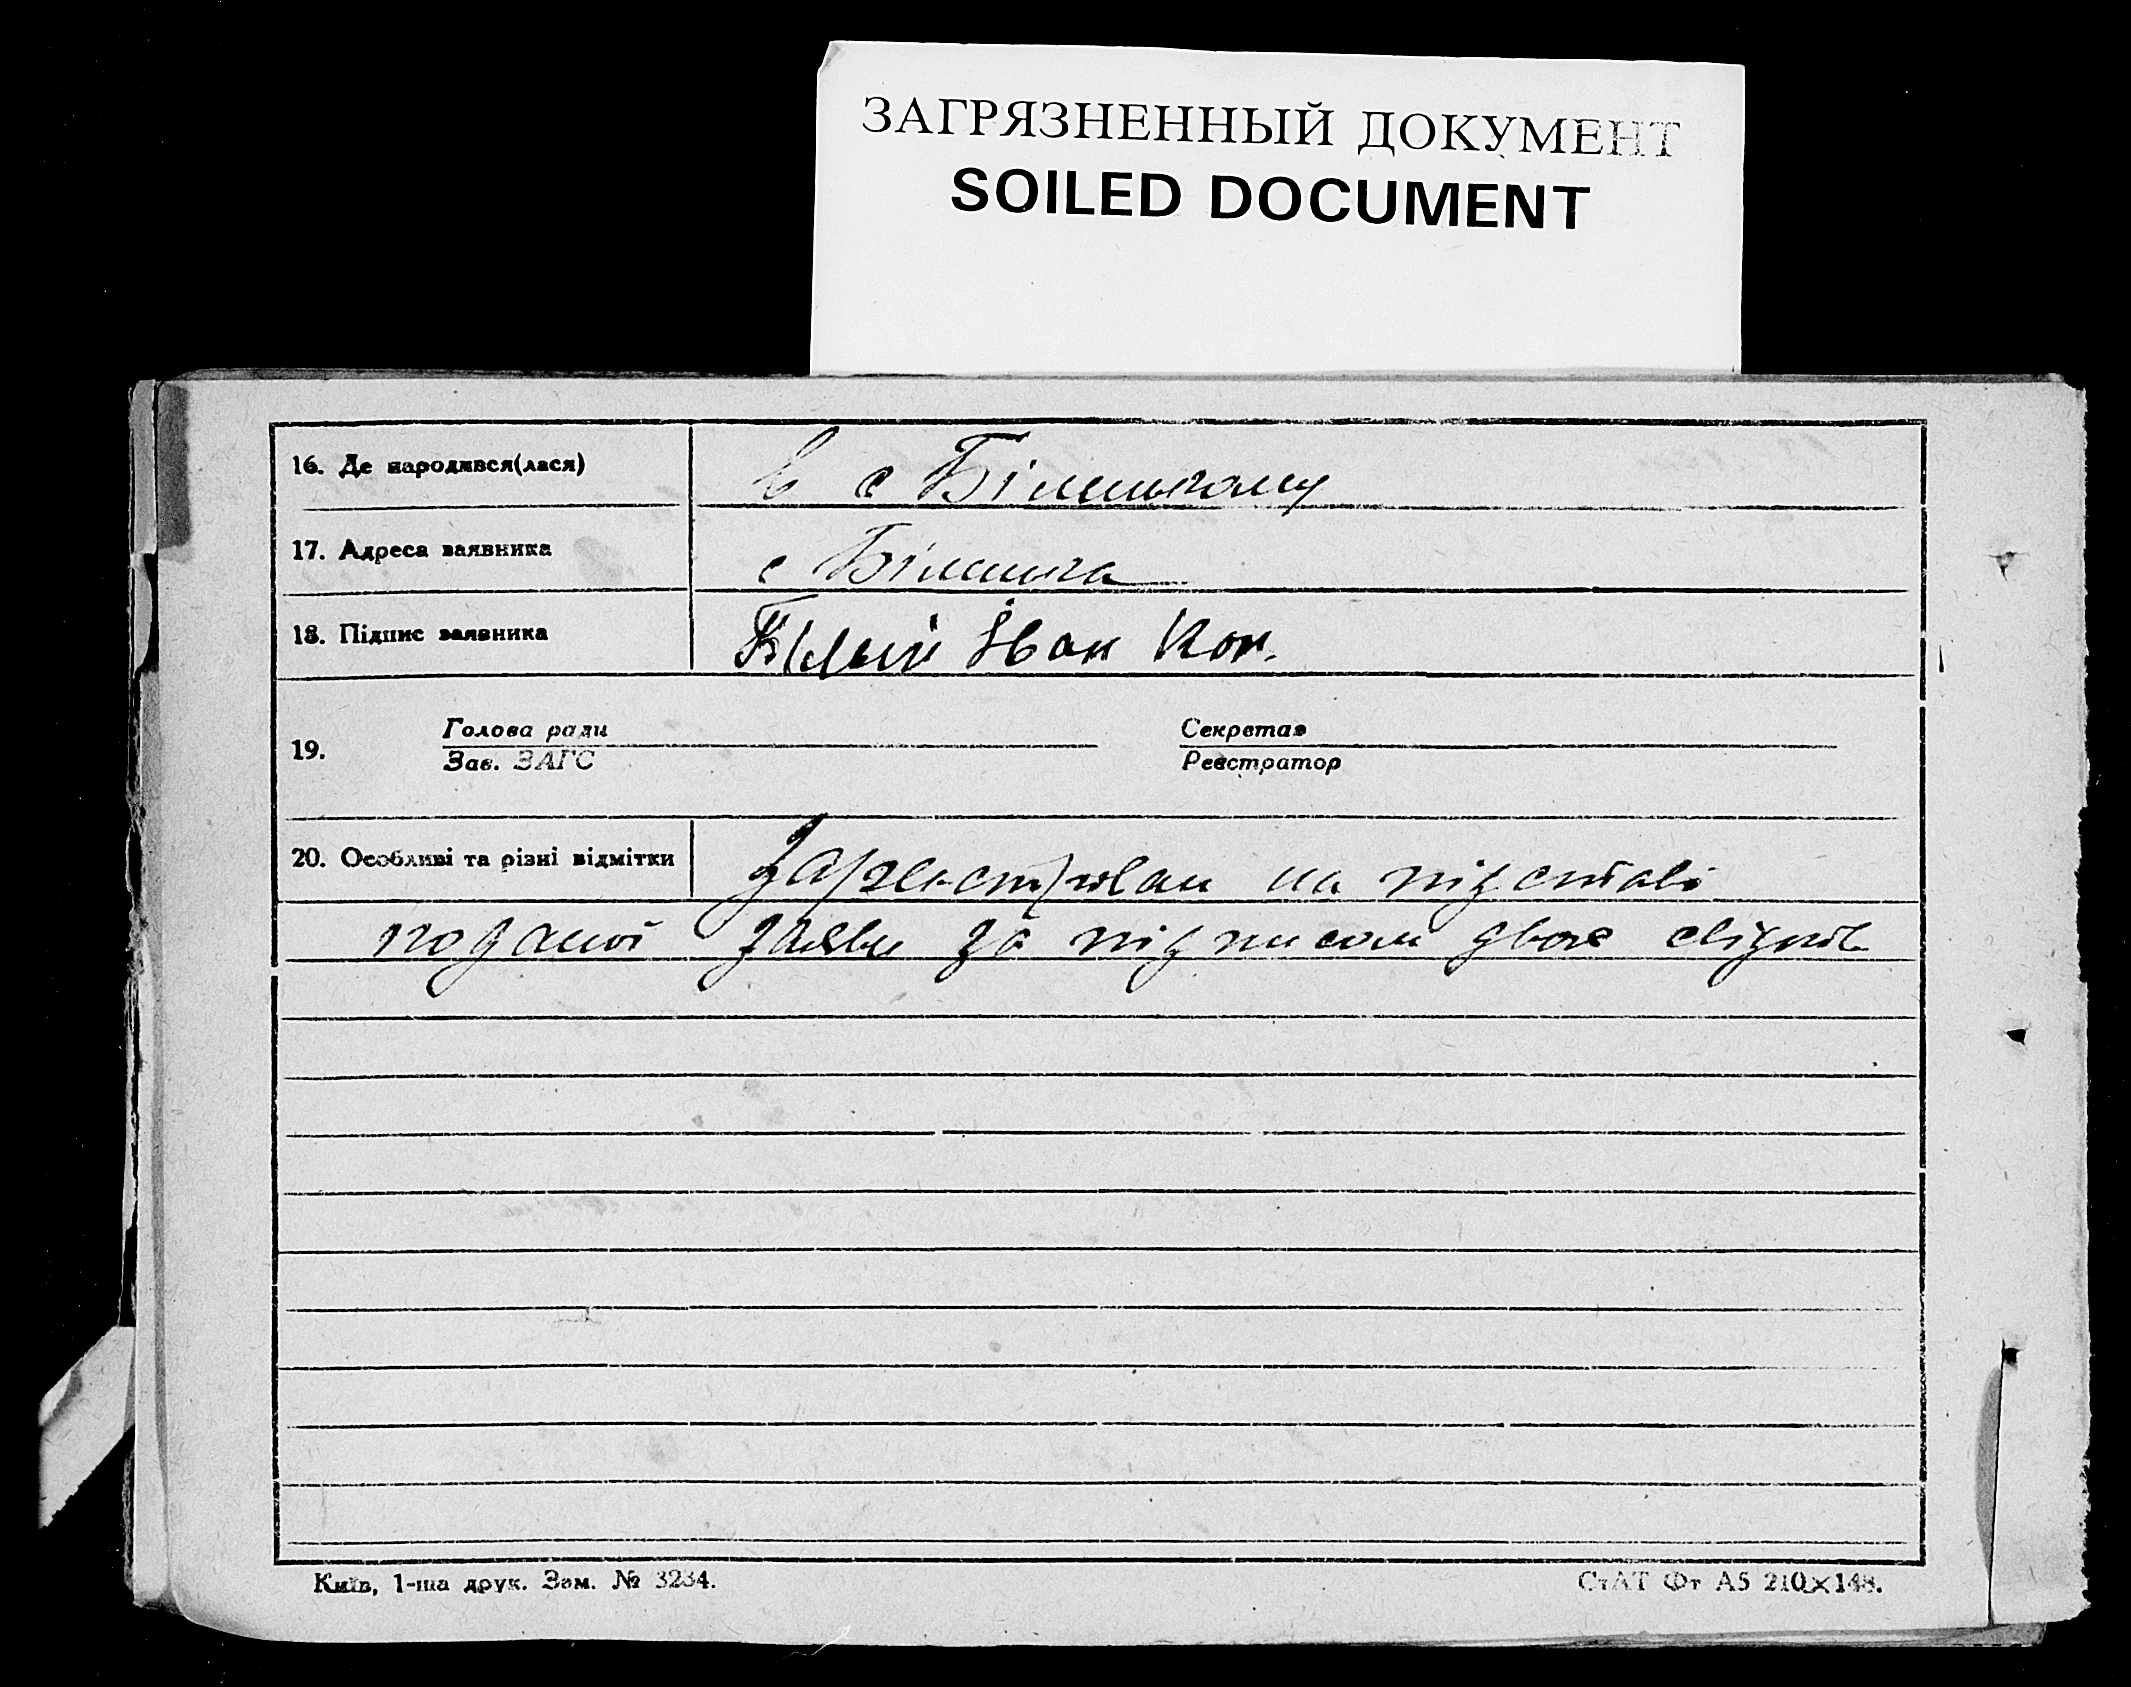 ЗАГРЯЗНЕННЫЙ ДОКУМЕНТ
SOILED DOCUMENT
16. Де народився(лася)
в с
17. Адреса заявника
с
18. Підпис заявника
Білий Іван Кон.
19.
Голова ради
Зав. ЗАГС
Секретар
Реєстратор
20. Особливі та різні відмітки
Зареєстрован на підставі
поданої заяви за підписом двох свідків
Київ, 1-ша друк. Зам. № 3234.
СтАТ Фт А5 210×148.